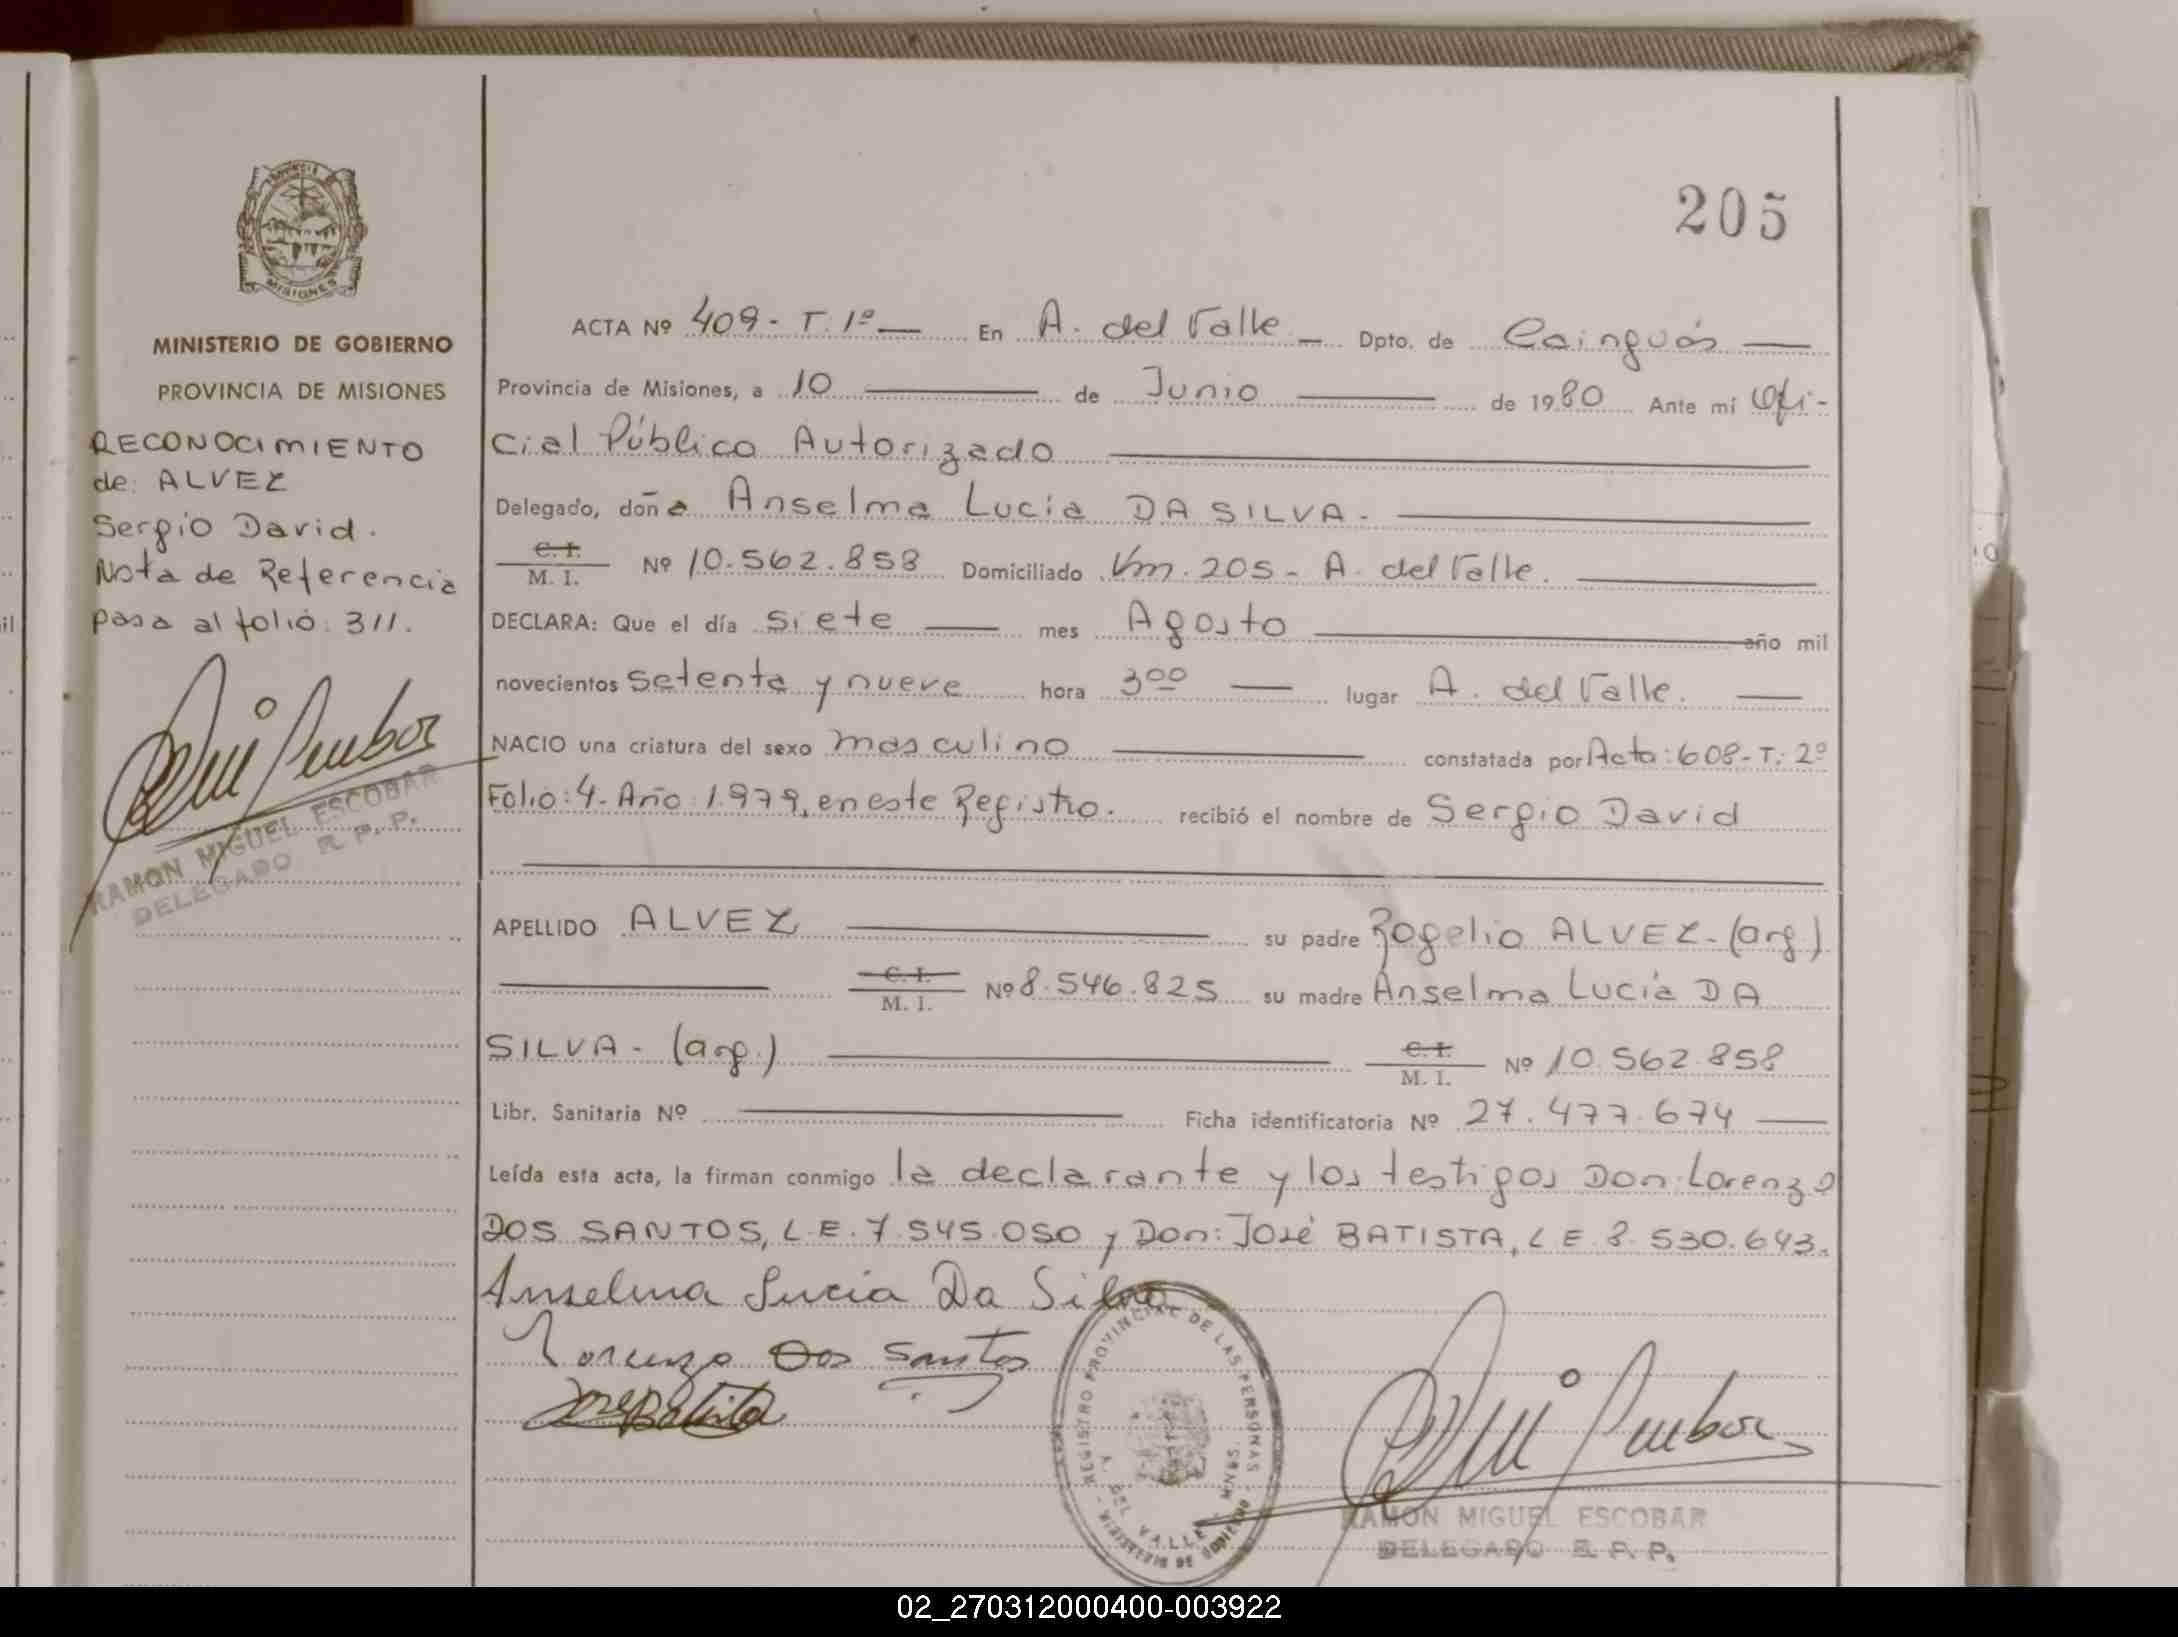 205
PROVINCIA DE
MISIONES
MINISTERIO DE GOBIERNO
PROVINCIA DE MISIONES
RECONOCIMIENTO
de: ALVEZ
Sergio David.
Nota de Referencia
pasa al folio: 311.
RAMON MIGUEL ESCOBAR
DELEGADO R. P. P.
ACTA Nº 409 - T. 1º — En A. del Valle — Dpto. de Cainguás —
Provincia de Misiones, a 10 — de Junio — de 1980 Ante mi Ofi-
cial Público Autorizado —
Delegado, doña Anselma Lucia DA SILVA. —
C. I.
M. I. Nº 10.562.858 Domiciliado Km. 205 - A. del Valle. —
DECLARA: Que el día siete — mes Agosto — año mil
novecientos setenta y nueve hora 3⁰⁰ — lugar A. del Valle. —
NACIO una criatura del sexo masculino — constatada por Acta: 608 - T: 2º
Folio: 4 - Año: 1.979, en este Registro. recibió el nombre de Sergio David
APELLIDO ALVEZ — su padre Rogelio ALVEZ - (arg.)
— C. I.
M. I. Nº 8.546.825 su madre Anselma Lucia DA
SILVA - (arg.) — C. I.
M. I. Nº 10.562.858
Libr. Sanitaria Nº — Ficha identificatoria Nº 27.477.674 —
Leída esta acta, la firman conmigo la declarante y los testigos Don: Lorenzo
DOS SANTOS, L.E. 7.545.050 y Don: José BATISTA, L E 8.530.643.
Anselma Lucia Da Silva
Lorenzo Dos Santos
José Batista
REGISTRO PROVINCIAL DE LAS PERSONAS
A. DEL VALLE - MNES.
MINISTERIO DE GOBIERNO
RAMON MIGUEL ESCOBAR
DELEGADO R. P. P.
02_270312000400-003922